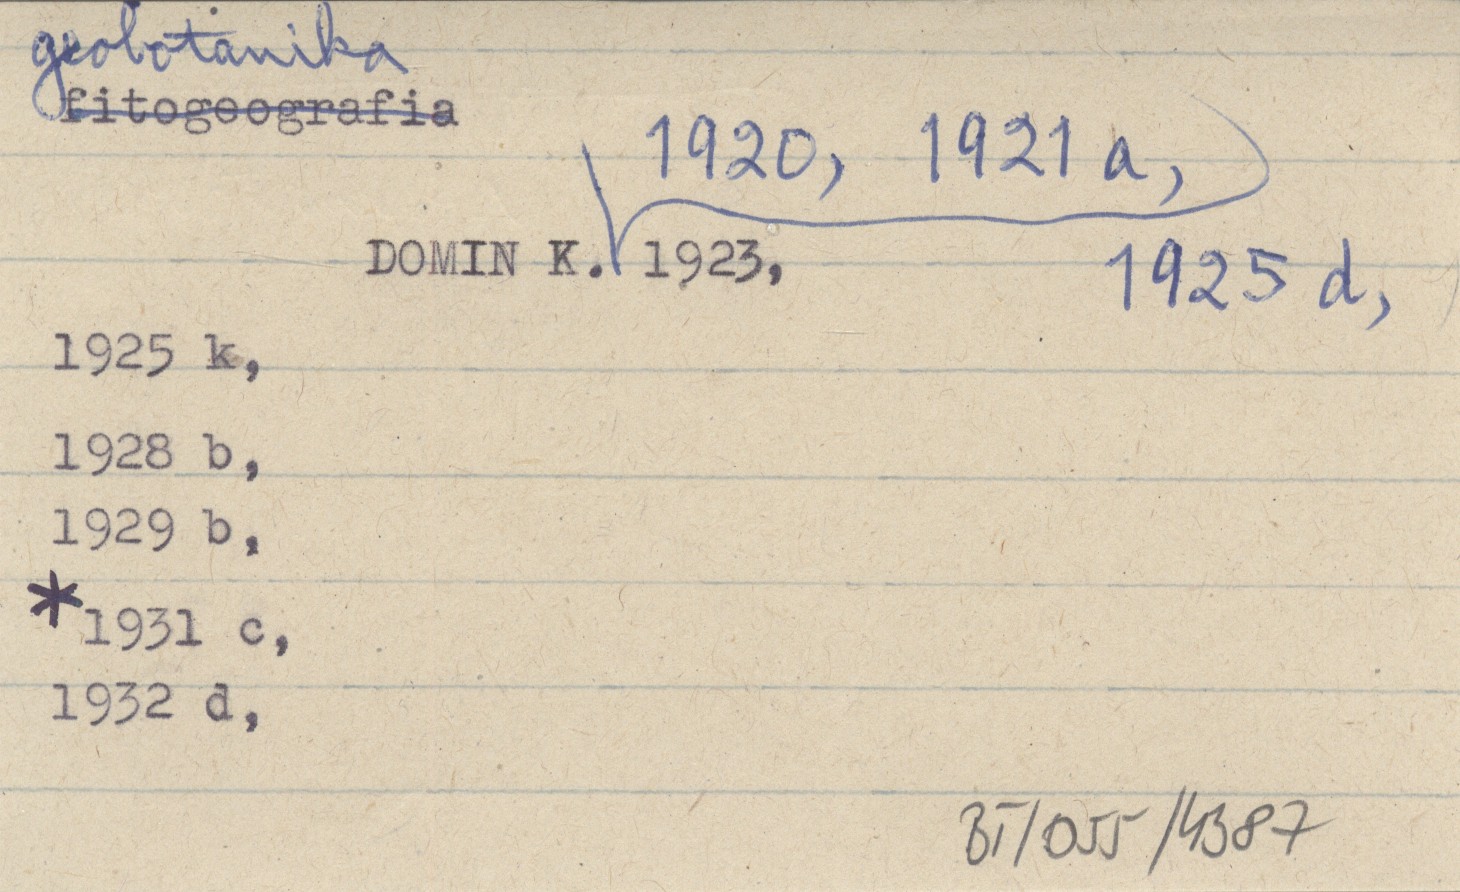 geobotanika
fitogeografia
1920, 1921 a,
DOMIN K. 1923,
1925 d,
1925 k,
1928 b,
1929 b,
*1931 c,
1932 d,
BT/055/4387